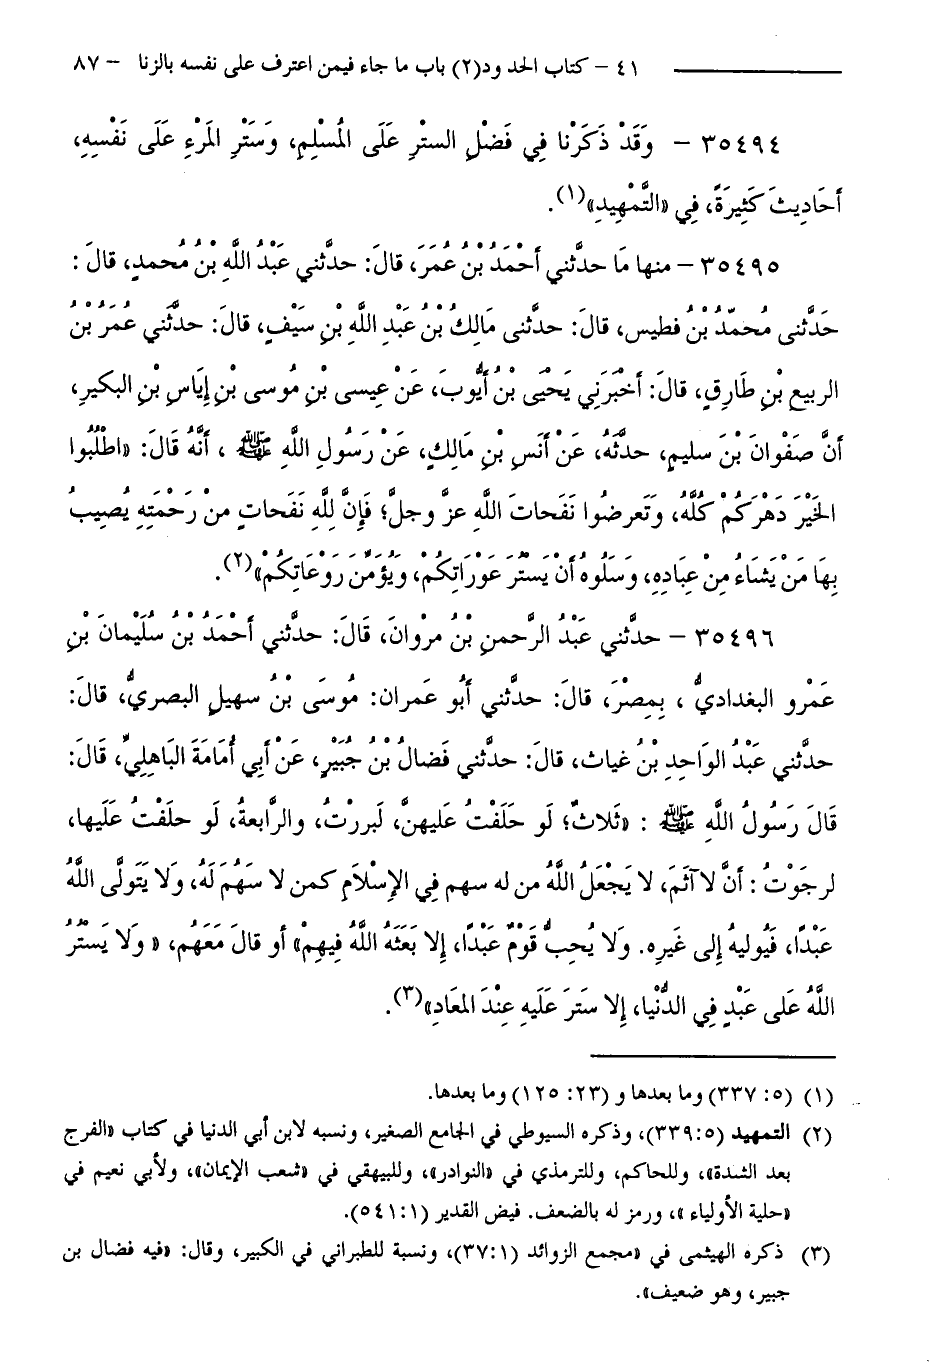 ٤١ – كتاب الحدود(٢) باب ما جاء فيمن اعترف على نفسه بالزنا – ٨٧
٣٥٤٩٤ – وَقَدْ ذَكَرْنا فِي فَضْلِ الستْرِ عَلَى المُسْلِمِ، وَسَتْرِ المَرْءِ عَلَى نَفْسِهِ،
أَحَادِيثَ كَثِيرَةً، فِي «التَّمْهِيدِ»(١).
٣٥٤٩٥ – منها مَا حدَّثني أَحْمَدُ بْنُ عُمَرَ، قالَ: حدَّثني عَبْدُ اللَّهِ بْنُ مُحمدٍ، قالَ:
حَدَّثنى مُحمَّدُ بْنُ فطيس، قالَ: حدَّثنى مَالِكُ بْنُ عَبْدِ اللَّهِ بْنِ سَيْفٍ، قالَ: حدَّثني عُمَرُ بْنُ
الربيعِ بْنِ طَارِقٍ، قالَ: أَخْبَرَنِي يَحْيَى بْنُ أَيُّوبَ، عَنْ عِيسى بْنِ مُوسى بْنِ إِيَاسِ بْنِ البكيرِ،
أَنَّ صَفْوانَ بْنَ سليمٍ، حدثَّهُ، عَنْ أَنَسِ بْنِ مَالِكٍ، عَنْ رَسُولِ اللَّهِ ﷺ ، أَنَّهُ قَالَ: «اطْلُبُوا
الخَيْرَ دَهْرَكُمْ كُلَّهُ، وَتَعرضُوا نَفَحاتَ اللَّهِ عزَّ وجلَّ؛ فَإِنَّ لِلَّهِ نَفَحاتٍ منْ رَحْمَتِهِ يُصِيبُ
بِهَا مَنْ يَشَاءُ مِنْ عِبادِهِ، وَسَلُوهُ أَنْ يَسْتُرَ عَوْرَاتِكُمْ، ويُؤَمِّنَ رَوْعَاتِكُمْ»(٢).
٣٥٤٩٦ – حدَّثني عَبْدُ الرَّحمنِ بْنُ مرْوانَ، قَالَ: حدَّثني أَحْمَدُ بْنُ سُلَيْمانَ بْنِ
عَمْرو البغداديُّ ، بِمِصْرَ، قالَ: حدَّثني أَبُو عَمران: مُوسَى بْنُ سهيلٍ البصريُّ، قالَ:
حدَّثني عَبْدُ الوَاحِدِ بْنُ غياث، قالَ: حدَّثني فَضالُ بْنُ جُبَيْرٍ، عَنْ أَبِي أُمَامَةَ البَاهِلِيِّ، قَالَ:
قَالَ رَسُولُ اللَّهِ ﷺ : «ثَلاثٌ؛ لَو حَلَفْتُ عَليهنَّ، لَبررْتُ، والرَّابعةُ، لَو حلَفْتُ عَلَيها،
لرجَوْتُ: أَنَّ لا آثَمَ، لا يَجْعَلُ اللَّهُ من له سهم فِي الإِسْلامِ كمن لا سَهْمَ لَهُ، ولا يَتَولَّى اللَّهُ
عَبْدًا، فَيُوليهُ إِلى غَيره. وَلا يُحبُّ قَوْمٌ عَبْدًا، إِلا بَعَثَهُ اللَّهُ فِيهِمْ» أو قالَ مَعَهُم، « وَلا يَسْتُرُ
اللَّهُ عَلى عَبْدٍ فِي الدُّنْيا، إِلا سَترَ عَلَيهِ عِنْدَ المعَادِ»(٣).
(١) (٥: ٣٣٧) وما بعدها و (٢٣: ١٢٥) وما بعدها.
(٢) التمهيد (٥:٣٣٩)، وذكره السيوطي في الجامع الصغير، ونسبه لابن أبي الدنيا في كتاب «الفرج
بعد الشدة»، وللحاكم، وللترمذي في «النوادر»، وللبيهقي في «شعب الإيمان»، ولأبي نعيم في
«حلية الأولياء »، ورمز له بالضعف. فيض القدير (١:٥٤١).
(٣) ذكره الهيثمى في «مجمع الزوائد (١:٣٧)، ونسبة للطبراني في الكبير، وقال: «فيه فضال بن
جبير، وهو ضعيف».